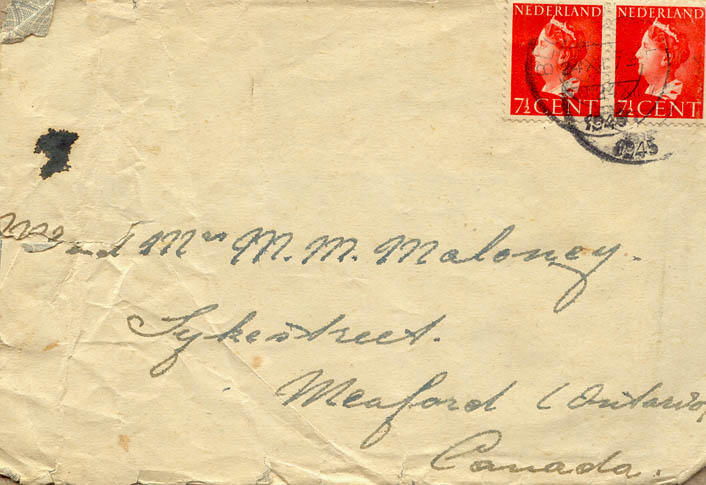 NEDERLAND NEDERLAND
7½ CENT 7½ CENT
1945
1945
and Mrs M. M. Maloney.
Sykestreet.
Meaford (Ontario)
Canada.